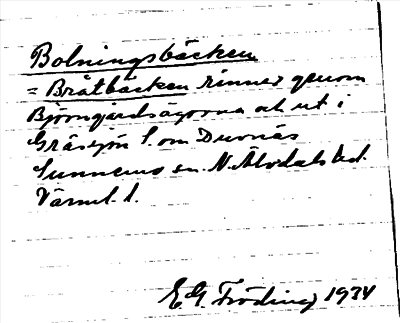 Bolningsbäcken
= Bråtbäcken rinner genom
Björngårdsägorna och ut i
Gräsjön S. om Duvnäs
Sunnemo sn. N. Älvdals hd.
Värml. l.
E. G. Fröding 1934